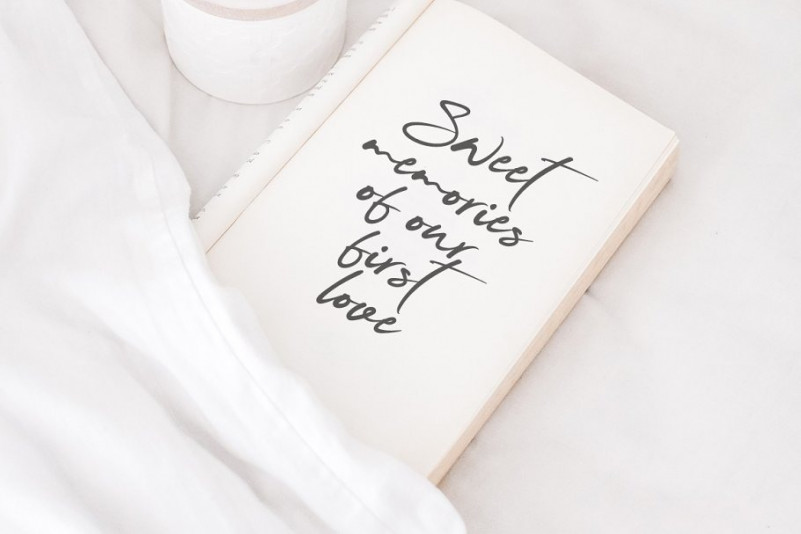 Sweet
memories
of our
first
love